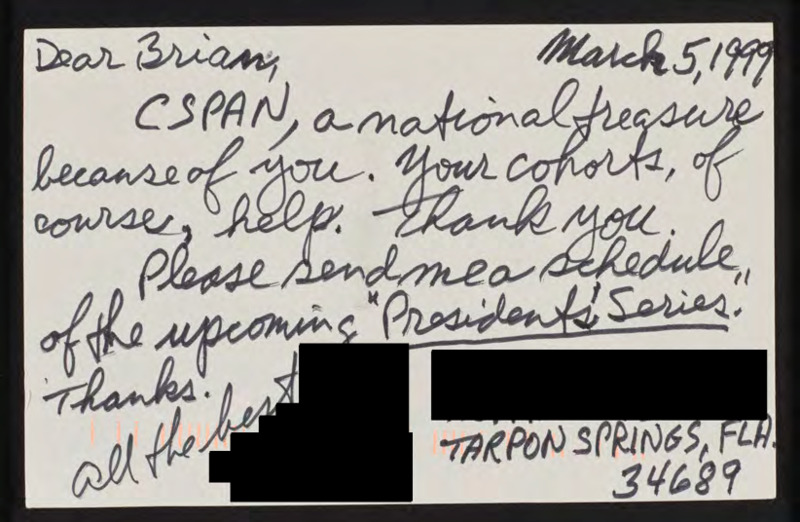 Dear Brian,
March 5, 1999
CSPAN, a national treasure
because of you. Your cohorts, of
course, help. Thank you.
Please send me a schedule
of the upcoming "Presidents' Series."
Thanks.
all the best
TARPON SPRINGS, FLA.
34689